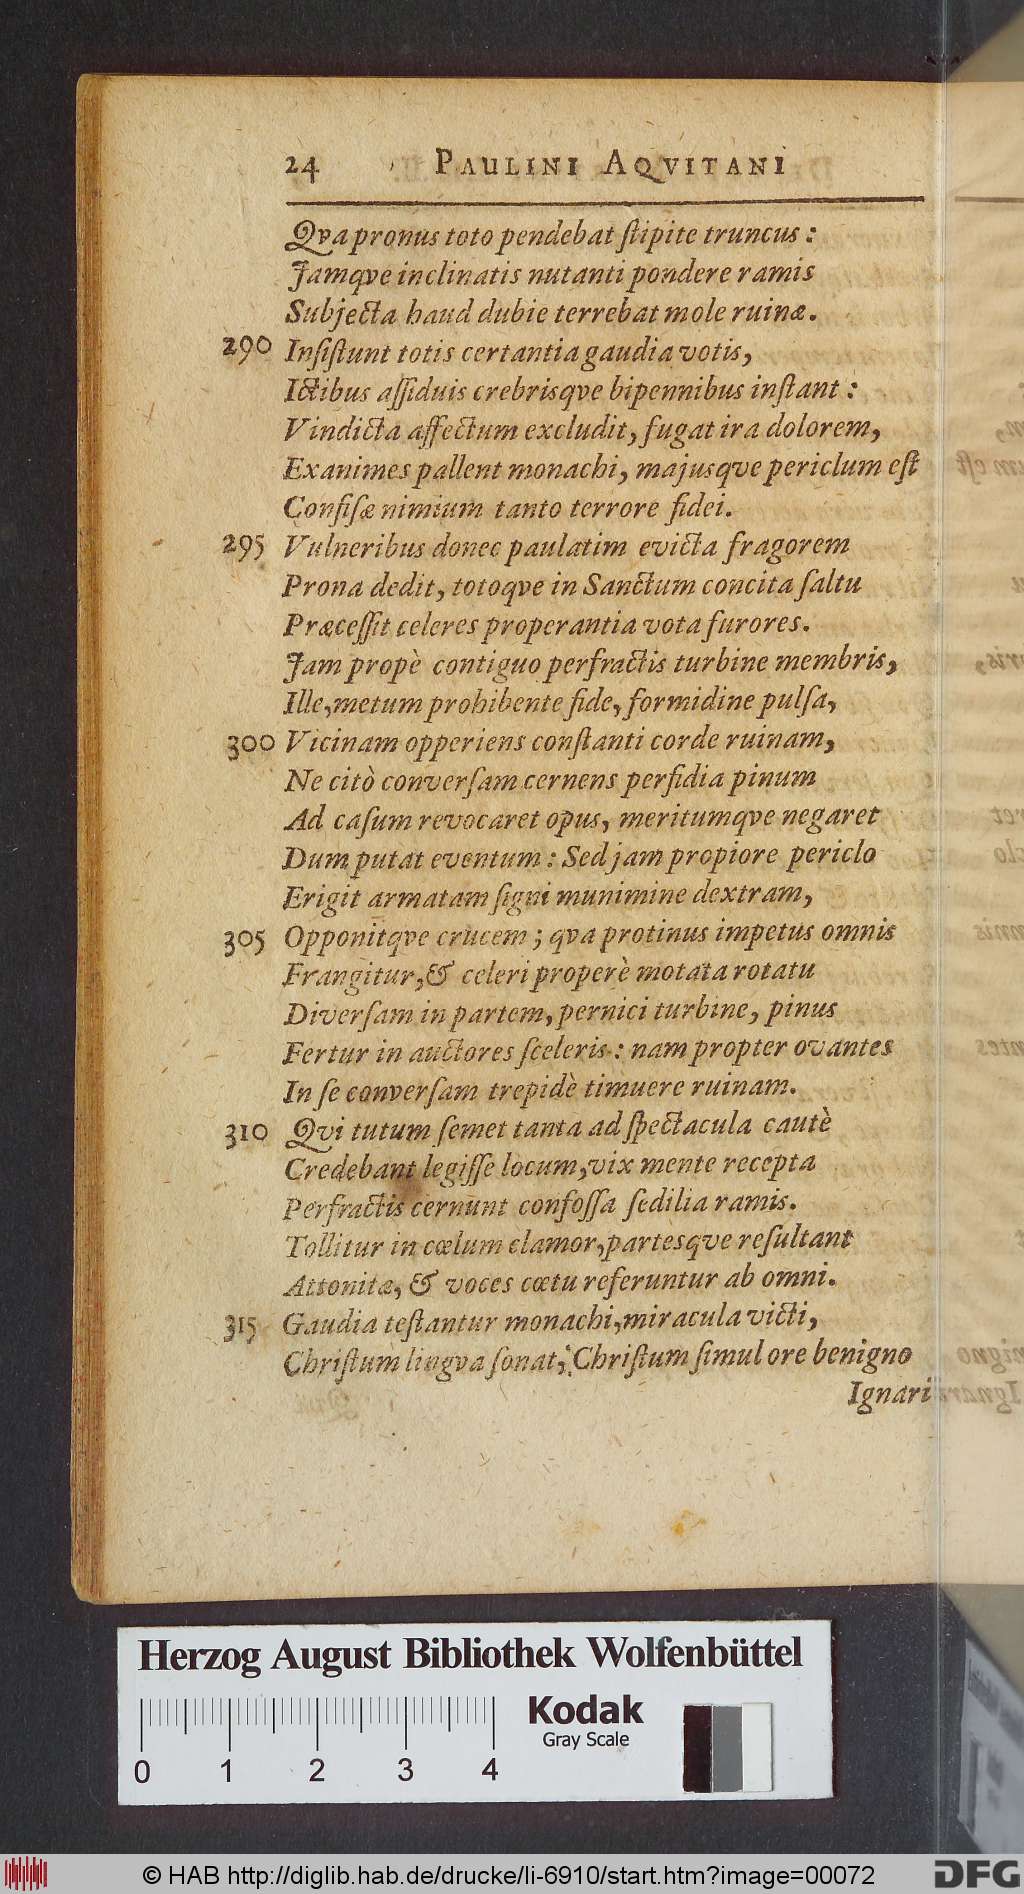 24 PAULINI AQVITANI
Qva pronus toto pendebat ſtipite truncus:
Jamqve inclinatis nutanti pondere ramis
Subjecta haud dubie terrebat mole ruinæ.
290 Inſiſtunt totis certantia gaudia votis,
Ictibus aſſiduis crebrisqve bipennibus inſtant:
Vindicta affectum excludit, fugat ira dolorem,
Exanimes pallent monachi, majusqve periclum eſt
Confiſæ nimium tanto terrore fidei.
295 Vulneribus donec paulatim evicta fragorem
Prona dedit, totoqve in Sanctum concita ſaltu
Præceſſit celeres properantia vota furores.
Jam propè contiguo perfractis turbine membris,
Ille, metum prohibente fide, formidine pulſa,
300 Vicinam opperiens conſtanti corde ruinam,
Ne citò converſam cernens perfidia pinum
Ad caſum revocaret opus, meritumqve negaret
Dum putat eventum: Sed jam propiore periclo
Erigit armatam ſigni munimine dextram,
305 Opponitqve crucem; qva protinus impetus omnis
Frangitur, & celeri properè motata rotatu
Diverſam in partem, pernici turbine, pinus
Fertur in auctores ſceleris: nam propter ovantes
In ſe converſam trepidè timuere ruinam.
310 Qvi tutum ſemet tanta ad ſpectacula cautè
Credebant legiſſe locum, vix mente recepta
Perfractis cernunt confoſſa ſedilia ramis.
Tollitur in cœlum clamor, partesqve reſultant
Attonitæ, & voces cœtu referuntur ab omni.
315 Gaudia teſtantur monachi, miracula victi,
Chriſtum lingva ſonat; Chriſtum ſimul ore benigno
Ignari
Herzog August Bibliothek Wolfenbüttel
Kodak
Gray Scale
0 1 2 3 4
© HAB http://diglib.hab.de/drucke/li-6910/start.htm?image=00072
DFG